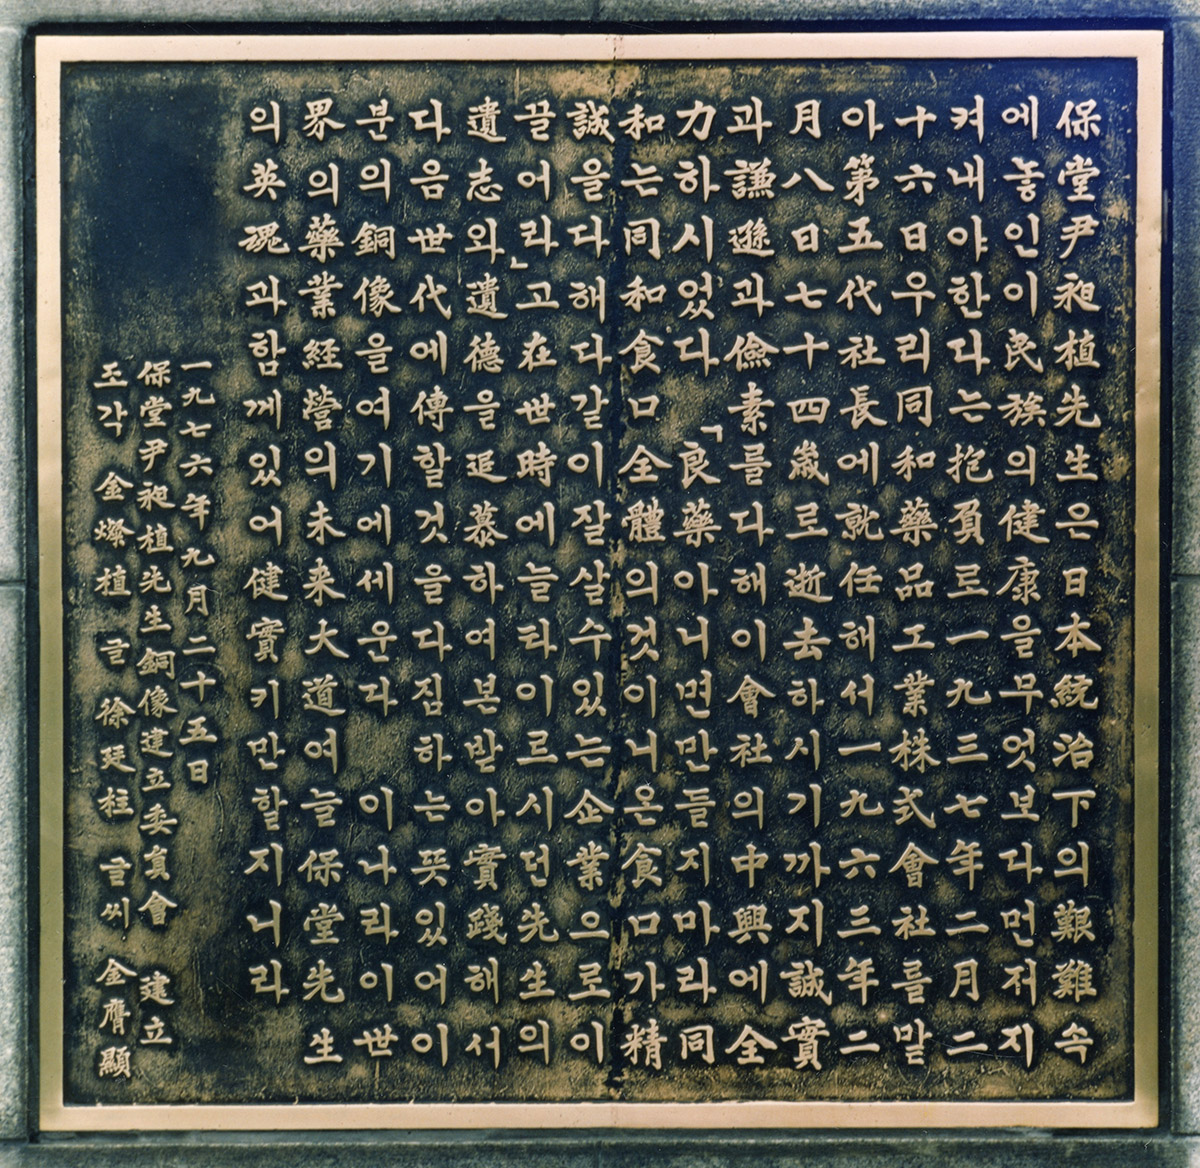 保堂尹昶植先生은日本統治下의艱難속
에놓인이民族의健康을무엇보다먼저지
켜내야한다는抱負로一九三七年二月二
十六日우리同和藥品工業株式會社를맡
아第五代社長에就任해서一九六三年二
月八日七十四歲로逝去하시기까지誠實
과謙遜과儉素를다해이會社의中興에全
力하시었다 「良藥아니면만들지마라同
和는同和食口全體의것이니온食口가精
誠을다해다갈이잘살수있는企業으로이
끌어라」고在世時에늘타이르시던先生의
遺志와遺德을追慕하여본받아實踐해서
다음世代에傳할것을다짐하는뜻있어이
분의銅像을여기에세운다 이나라이世
界의藥業經營의未来大道여늘保堂先生
의英魂과함께있어健實키만할지니라
一九七六年九月二十五日
保堂尹昶植先生銅像建立委員會 建立
조각 金燦植 글 徐廷柱 글씨 金膺顯